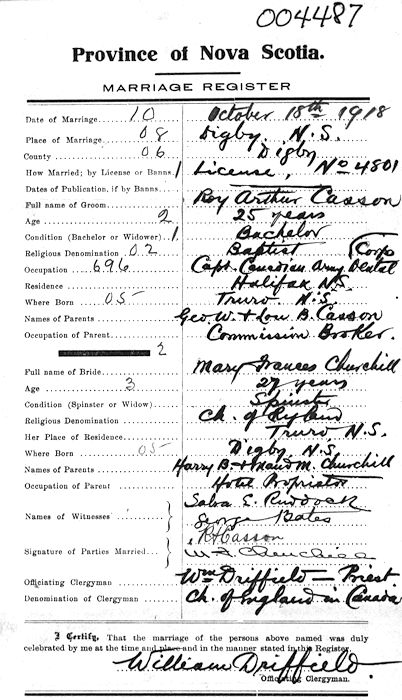 004487
Province of Nova Scotia.
MARRIAGE REGISTER
Date of Marriage 10 October 18th 1918
Place of Marriage 08 Digby, N.S.
County 06 Digby
How Married; by License or Banns 1 License, No 4801
Dates of Publication, if by Banns
Full name of Groom Roy Arthur Casson
Age 2 25 years
Condition (Bachelor or Widower) 1 Bachelor
Religious Denomination 02 Baptist (Corps
Occupation 696 Capt. Canadian Army Dental
Residence Halifax N.S.
Where Born 05 Truro N.S.
Names of Parents Geo W. + Lou B. Casson
Occupation of Parent Commission Broker.
2
Full name of Bride Mary Frances Churchill
Age 3 27 years
Condition (Spinster or Widow) Spinster
Religious Denomination Ch. of England
Her Place of Residence Truro, N.S.
Where Born 05 Digby N.S.
Names of Parents Harry B. + Maud M. Churchill
Occupation of Parent Hotel Proprietor
E. Ruddock
Names of Witnesses George Bates
RACasson
Signature of Parties Married M F Churchill
Officiating Clergyman Wm Driffield — Priest
Denomination of Clergyman Ch. of England in Canada
I Certify, That the marriage of the persons above named was duly
celebrated by me at the time and place and in the manner stated in this Register.
William Driffield.
Officiating Clergyman.